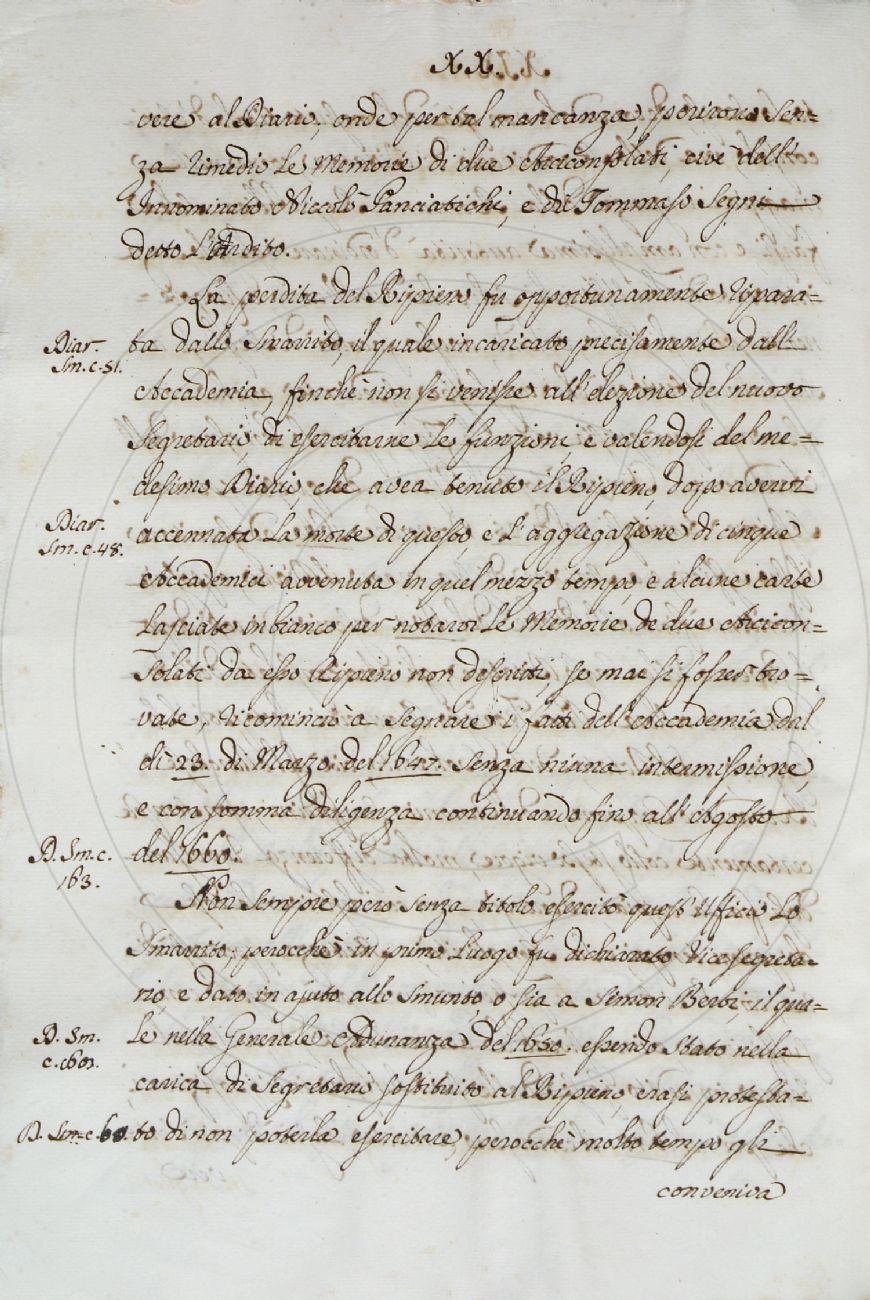 XX.
vere al Diario, onde per tal mancanza, perirono sen=
za rimedio le Memorie di due Arciconsolati, cioè dell'
Innominato Niccolò Panciatichi, e di Tommaso Segni
detto L'Ardito.
La perdita del Ripieno fu opportunamente ripara=
Diar.
Sm. c. 51.
ta dallo Smarrito, il quale incaricato precisamente dall'
Accademia, finchè non si venisse all'elezione del nuovo
Segretario, di esercitarne le funzioni, e valendosi del me=
desimo Diario, che avea tenuto il Ripieno, dopo avervi
Diar.
Sm. c. 48.
accennata la morte di questo, e l'aggregazione di cinque
Accademici avvenuta in quel mezzo tempo, e alcune carte
lasciate in bianco per notarvi le Memorie de due Arcicon=
solati da esso Ripieno non descritti, se mai si fosser tro=
vate, ricominciò a segnare i fatti dell'Accademia dal
dì 23. di Marzo del 1647. senza niuna intermissione,
e con somma diligenza continuando fino all'Agosto
D. Sm. c.
163.
del 1660.
Non sempre però senza titolo esercitò quest'Uffizio lo
Smarrito; perocchè in primo luogo fu dichiarato Vicesegreta=
rio, e dato in ajuto allo Smunto, o sia a Simon Berti, il qua=
D. Sm.
c.
le nella Generale Adunanza del 1650. essendo stato nella
carica di Segretario sostituito al Ripieno, erasi protesta=
D. Sm. c. 60.
to di non poterla esercitare, perocchè molto tempo gli
conveniva